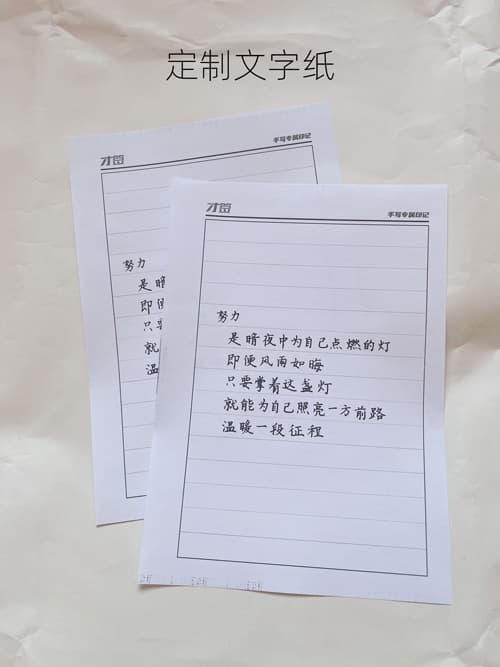 定制文字纸
手写专属印记
努力
是暗
即便
只要
就
温
手写专属印记
努力
是暗夜中为自己点燃的灯
即便风雨如晦
只要掌着这盏灯
就能为自己照亮一方前路
温暖一段征程